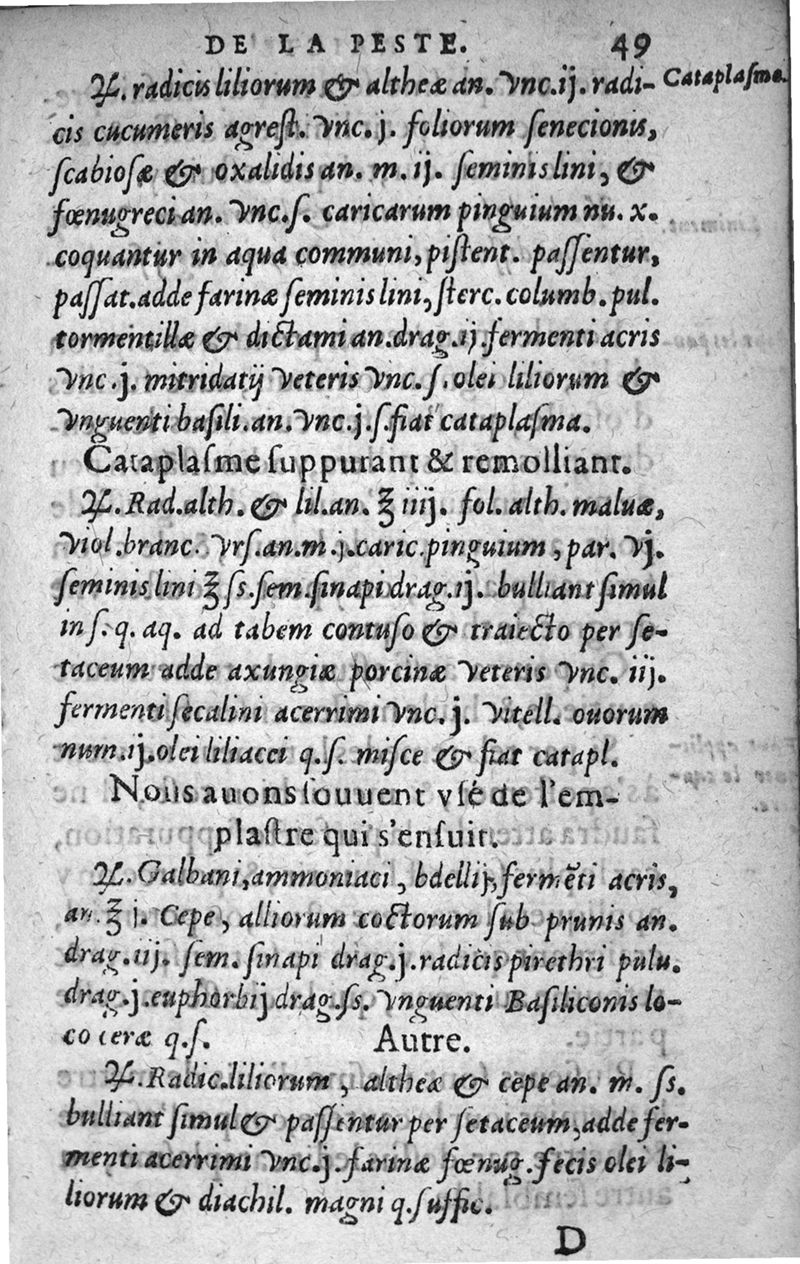 DE LA PESTE. 49
℞. radicis liliorum & altheæ an. vnc.ij. radi- Cataplasme.
cis cucumeris agrest. vnc. j. foliorum senecionis,
scabiosæ & oxalidis an. m. ij. seminis lini, &
fœnugreci an. vnc.ſ. caricarum pinguium nu. x.
coquantur in aqua communi, pistent. passentur,
passat. adde farinæ seminis lini, sterc. columb. pul.
tormentillæ & dictami an. drag. ij. fermenti acris
vnc. j. mitridatij veteris vnc. ſ. olei liliorum &
vnguenti basili. an. vnc. j. ſ. fiat cataplasma.
Cataplasme suppurant & remolliant.
℞. Rad. alth. & lil. an. ℥ iiij. fol. alth. maluæ,
viol. branc. vrs. an. m. j. caric. pinguium, par. vj.
seminis lini ℥ ſs. sem. sinapi drag. ij. bulliant simul
in s. q. aq. ad tabem contuso & traiecto per se-
taceum adde axungiæ porcinæ veteris vnc. iij.
fermenti secalini acerrimi vnc. j. vitell. ouorum
num. ij. olei liliacei q. s. misce & fiat catapl.
Nous auons souuent vsé de l'em-
plastre qui s'ensuit.
℞. Galbani, ammoniaci, bdellij, fermēti acris,
an. ℥ j. Cepe, alliorum coctorum sub prunis an.
drag. iij. sem. sinapi drag. j. radicis pirethri pulu.
drag. j. euphorbij drag. ſs. vnguenti Basiliconis lo-
co ceræ q. s. Autre.
℞. Radic. liliorum, altheæ & cepe an. m. ſs.
bulliant simul & passentur per setaceum, adde fer-
menti acerrimi vnc. j. farinæ fœnug. fecis olei li-
liorum & diachil. magni q. suffic.
D